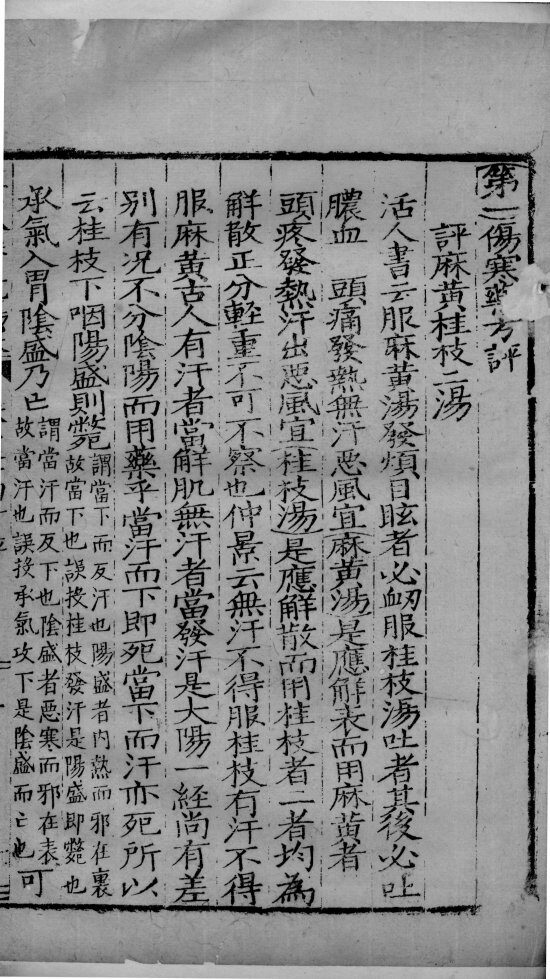 第二傷寒藥方評
評麻黃桂枝二湯
活人書云服麻黃湯發煩目眩者必衂服桂枝湯吐者其後必吐
膿血　頭痛發熱無汗惡風宜麻黃湯是應解表而用麻黃者
頭疼發熱汗出惡風宜桂枝湯是應解散而用桂枝者二者均為
解散正分輕重不可不察也仲景云無汗不得服桂枝有汗不得
服麻黃古人有汗者當解肌無汗者當發汗是大陽一経尚有差
別有况不分陰陽而用藥乎當汗而下即死當下而汗亦死所以
云桂枝下咽陽盛則斃謂當下而反汗也陽盛者内熱而邪在裏
故當下也誤投桂枝發汗是陽盛即斃也
承氣入胃陰盛乃亡謂當汗而反下也陰盛者惡寒而邪在表
故當汗也誤投承氣攻下是陰盛而亡也可